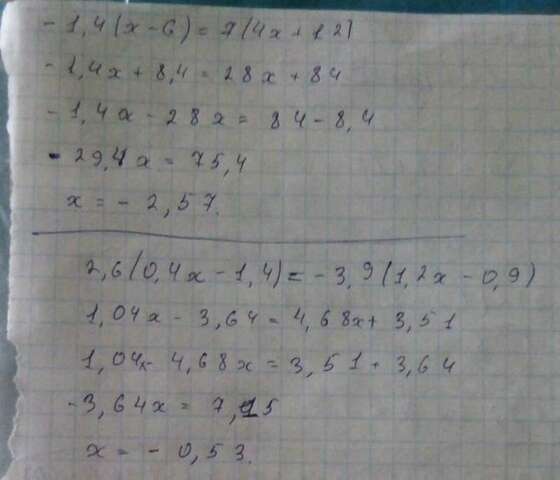 -1,4(x-6)=7(4x+12)
-1,4x+8,4=28x+84
-1,4x-28x=84-8,4
-29,4x=75,4
x=-2,57.
2,6(0,4x-1,4)=-3,9(1,2x-0,9)
1,04x-3,64=4,68x+3,51
1,04x-4,68x=3,51+3,64
-3,64x=7,15
x=-0,53.